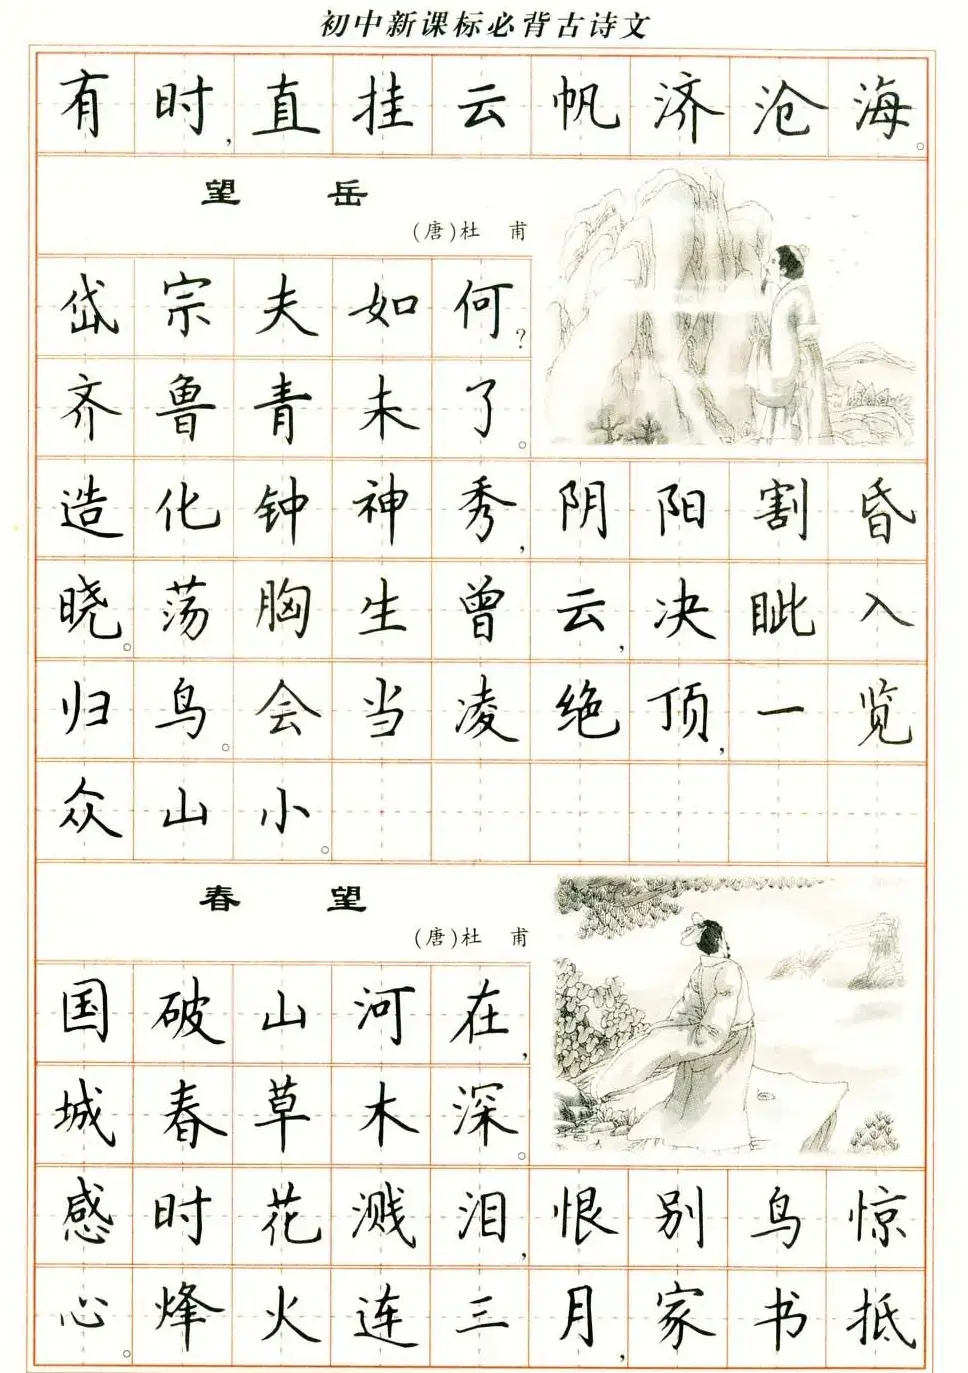 初中新课标必背古诗文
有时,直挂云帆济沧海。
望 岳
(唐)杜 甫
岱宗夫如何?
齐鲁青未了。
造化钟神秀,阴阳割昏
晓。荡胸生曾云,决眦入
归鸟。会当凌绝顶,一览
众山小。
春 望
(唐)杜 甫
国破山河在,
城春草木深。
感时花溅泪,恨别鸟惊
心。烽火连三月,家书抵